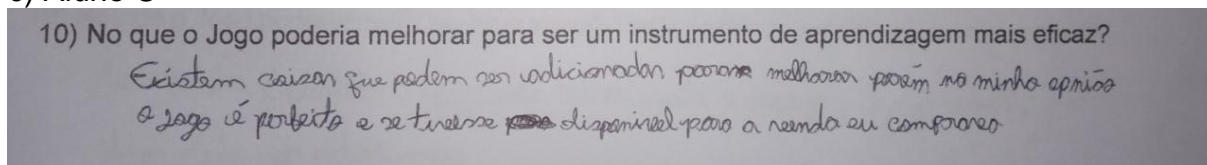 10) No que o Jogo poderia melhorar para ser um instrumento de aprendizagem mais eficaz?
Existem coisas que podem ser adicionadas para melhorar porém na minha opnião
o jogo é perfeito e se tivesse disponivel para a venda eu compraria